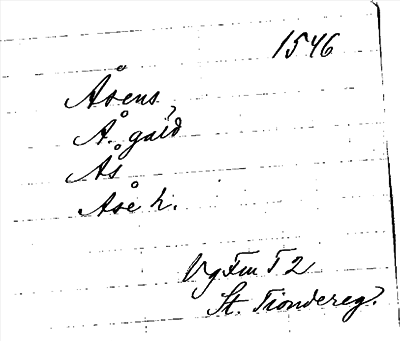 1546
Åsens
Å. gäld
Ås
Åse h.
Vg Fm T 2
St. Tiondereg.